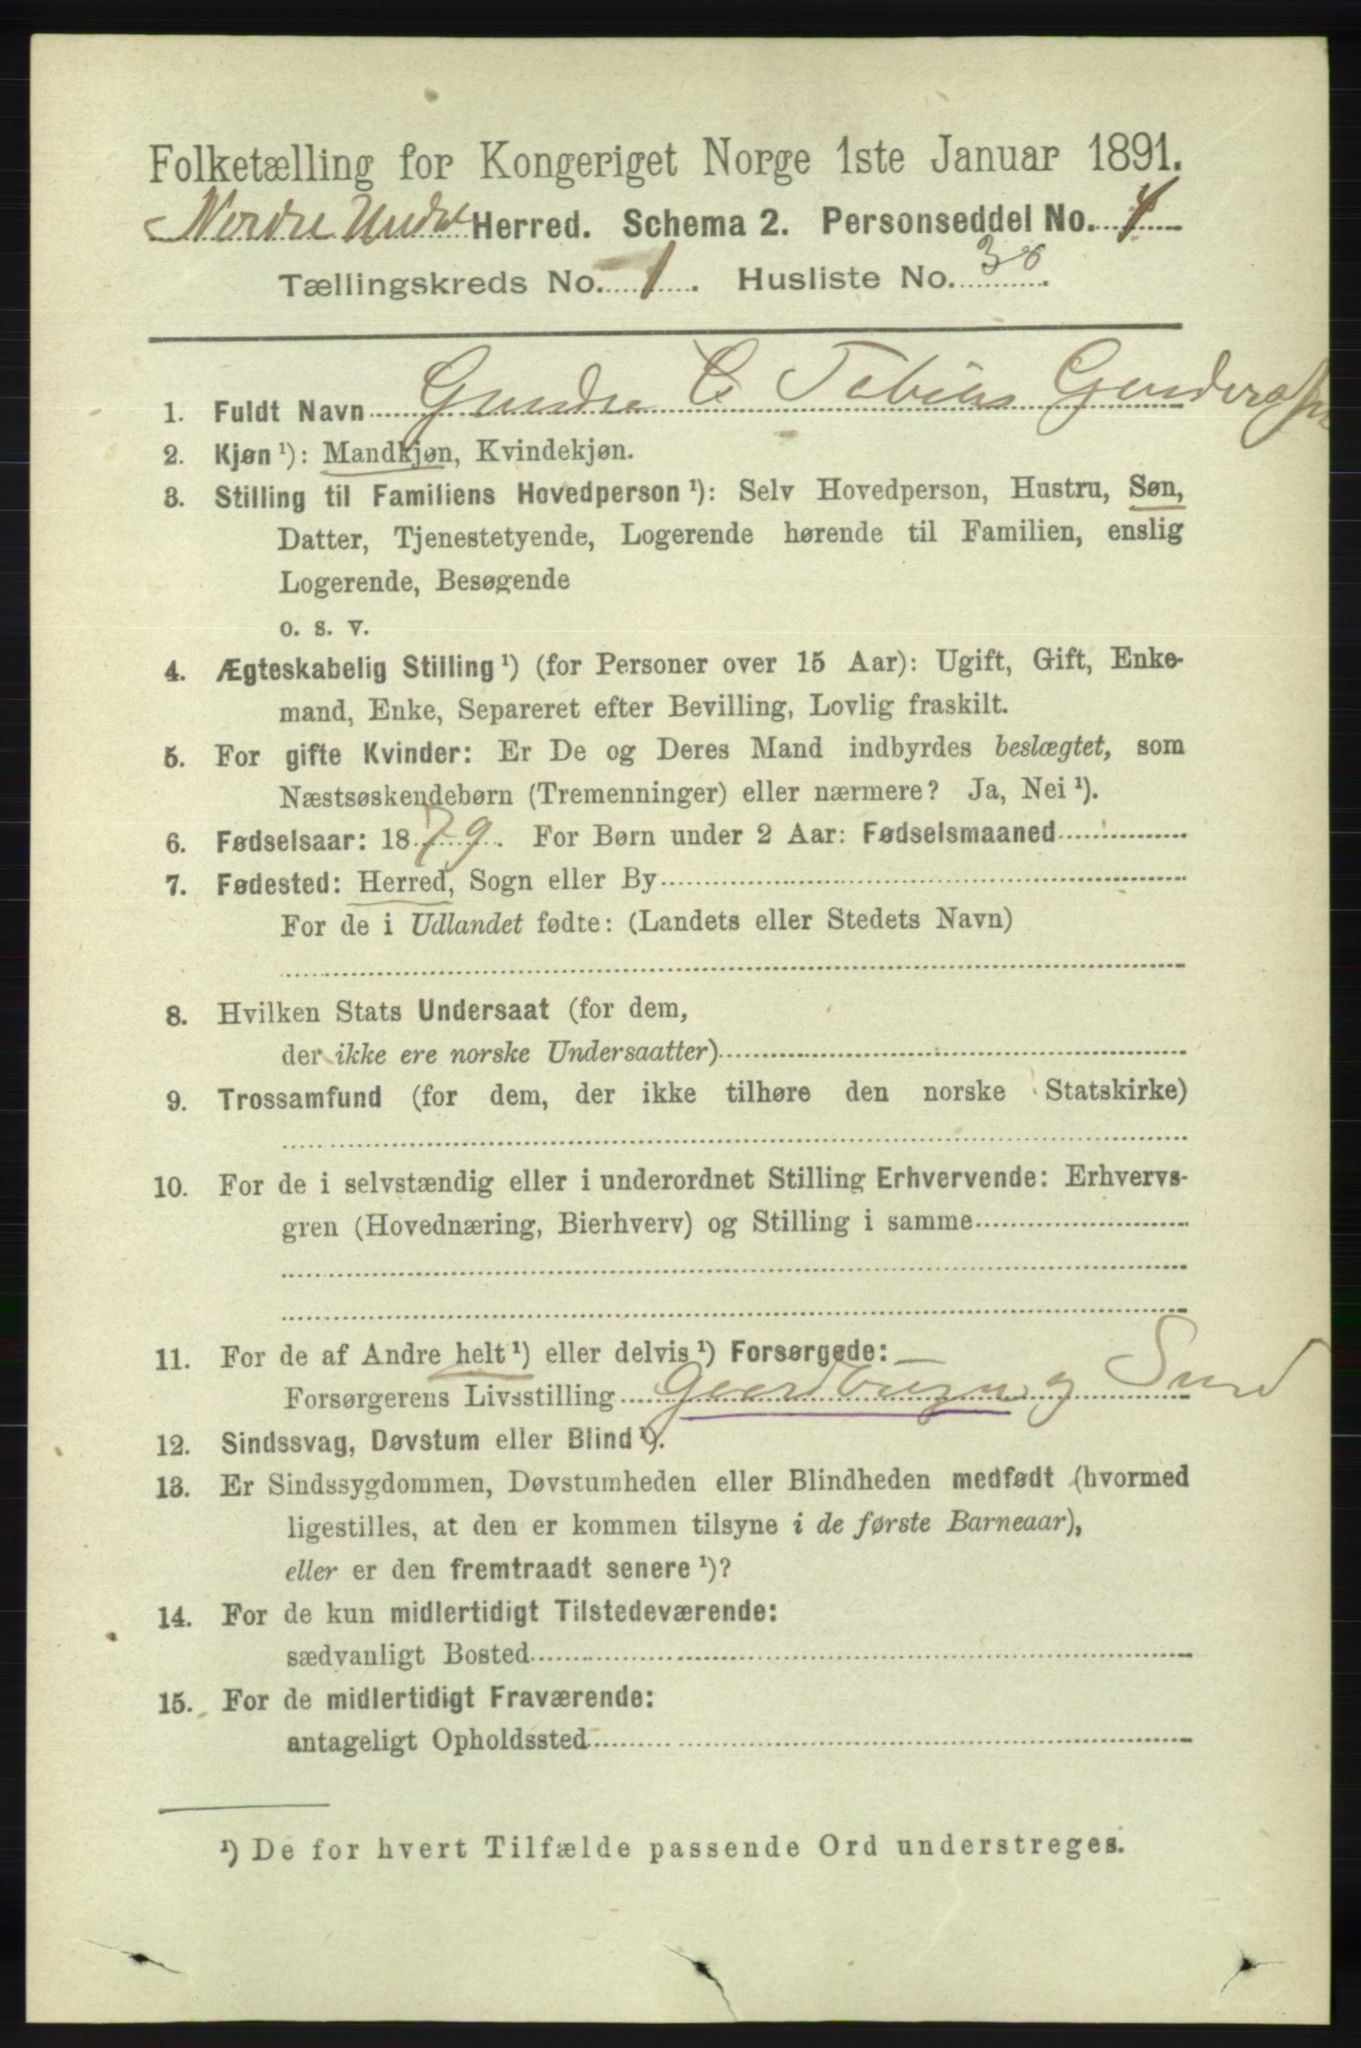 Folketælling for Kongeriget Norge 1ste Januar 1891.
Nordre Undal Herred. Schema 2. Personseddel No. 4
Tællingskreds No. 1. Husliste No. 38.
1. Fuldt Navn Gunder Tobias Gundersen
2. Kjøn¹): Mandkjøn, Kvindekjøn.
3. Stilling til Familiens Hovedperson¹): Selv Hovedperson, Hustru, Søn,
Datter, Tjenestetyende, Logerende hørende til Familien, enslig
Logerende, Besøgende
o. s. v.
4. Ægteskabelig Stilling¹) (for Personer over 15 Aar): Ugift, Gift, Enke-
mand, Enke, Separeret efter Bevilling, Lovlig fraskilt.
5. For gifte Kvinder: Er De og Deres Mand indbyrdes beslægtet, som
Næstsøskendebørn (Tremenninger) eller nærmere? Ja, Nei¹).
6. Fødselsaar: 1879. For Børn under 2 Aar: Fødselsmaaned
7. Fødested: Herred, Sogn eller By
For de i Udlandet fødte: (Landets eller Stedets Navn)
8. Hvilken Stats Undersaat (for dem,
der ikke ere norske Undersaatter)
9. Trossamfund (for dem, der ikke tilhøre den norske Statskirke)
10. For de i selvstændig eller i underordnet Stilling Erhvervende: Erhvervs-
gren (Hovednæring, Bierhverv) og Stilling i samme
11. For de af Andre helt¹) eller delvis¹) Forsørgede:
Forsørgerens Livsstilling Gaardbruger og Smed
12. Sindssvag, Døvstum eller Blind¹).
13. Er Sindssygdommen, Døvstumheden eller Blindheden medfødt (hvormed
ligestilles, at den er kommen tilsyne i de første Barneaar),
eller er den fremtraadt senere¹)?
14. For de kun midlertidigt Tilstedeværende:
sædvanligt Bosted
15. For de midlertidigt Fraværende:
antageligt Opholdssted
¹) De for hvert Tilfælde passende Ord understreges.